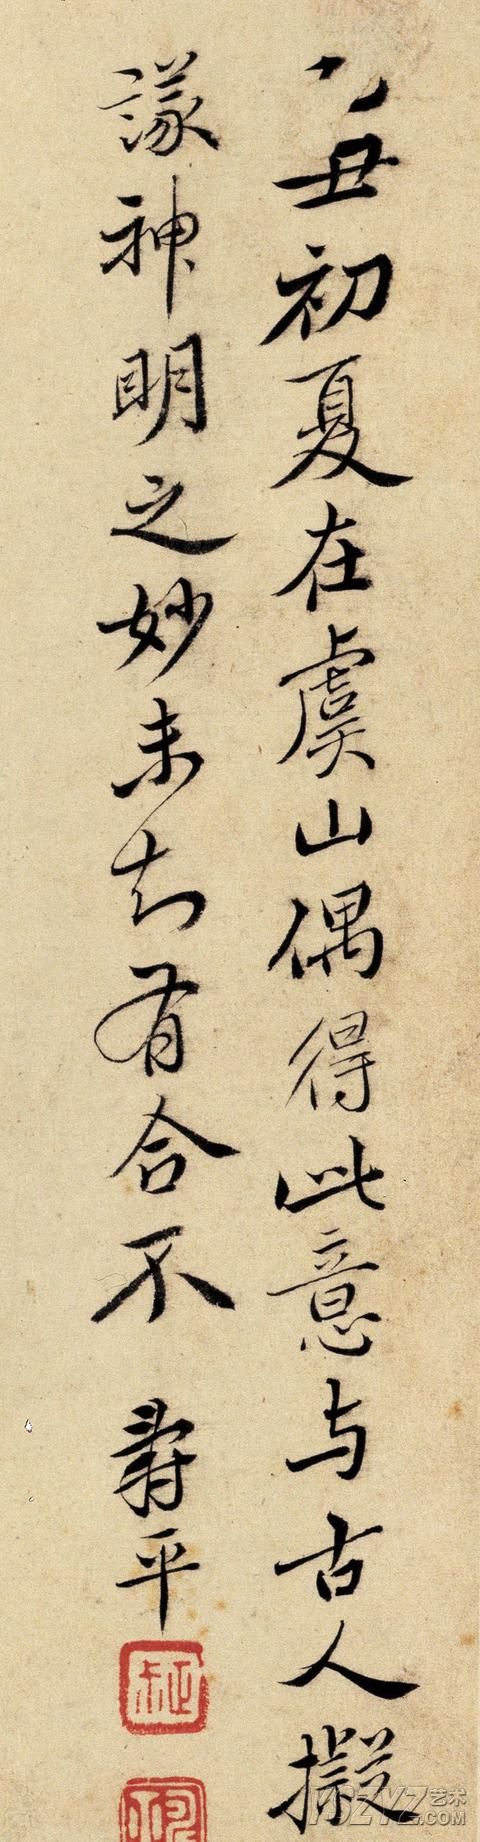 乙丑初夏在虞山偶得此意与古人擬
議神明之妙未知有合不 壽平
艺术
.COM